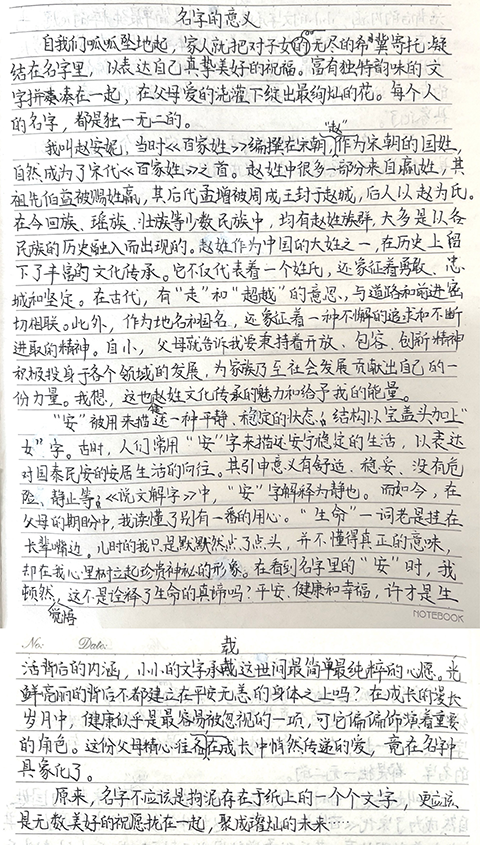 名字的意义
自我们呱呱坠地起，家人就把对子女的无尽的希冀寄托，凝
结在名字里，以表达自己真挚美好的祝福。富有独特韵味的文
字拼凑在一起，在父母爱的浇灌下绽出最绚灿的花。每个人
的名字，都是独一无二的。
我叫赵安妮，当时《百家姓》编撰在宋朝，“赵”作为宋朝的国姓，
自然成为了宋代《百家姓》之首。赵姓中很多一部分来自嬴姓，其
祖先伯益被赐姓嬴，其后代孟增被周成王封于赵城，后人以赵为氏。
在今回族、瑶族、壮族等少数民族中，均有赵姓族群，大多是以各
民族的历史融入而出现的。赵姓作为中国的大姓之一，在历史上留
下了丰富的文化传承。它不仅代表着一个姓氏，还象征着勇敢、忠
城和坚定。在古代，有“走”和“超越”的意思，与道路和前进密
切相联。此外，作为地名和国名，还象征着一种不懈的追求和不断
进取的精神。自小，父母就告诉我要秉持着开放、包容、创新精神
积极投身于各个领域的发展，为家族乃至社会发展贡献出自己的一
份力量。我想，这也是赵姓文化传承的魅力和给予我的能量。
“安”被用来描述一种平静、稳定的状态，结构以宝盖头加上“
女”字。古时，人们常用“安”字来描述安宁稳定的生活，以表达
对国泰民安的安居生活的向往。其引申意义有舒适、稳妥、没有危
险、静止等。《说文解字》中，“安”字解释为静也。而如今，在
父母的期盼中，我读懂了别有一番的用心。“生命”一词老是挂在
长辈嘴边。儿时的我只是默默然点了点头，并不懂得真正的意味，
却在我心里树立起珍贵神秘的形象。在看到名字里的“安”时，我
顿然觉悟，这不是诠释了生命的真谛吗？平安、健康和幸福，许才是生
NOTEBOOK
No: Date:
活背后的内涵，小小的文字承载这世间最简单最纯粹的心愿。光
鲜亮丽的背后不都建立在平安无恙的身体之上吗？在成长的漫长
岁月中，健康似乎是最容易被忽视的一项，可它偏偏饰演着重要
的角色。这份父母精心在成长中悄然传递的爱，竟在名字中
具象化了。
原来，名字不应该是拘泥存在于纸上的一个个文字，更应该
是无数美好的祝愿拢在一起，聚成璀灿的未来……